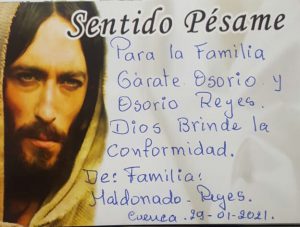 Sentido Pésame
Para la Familia
Gárate Osorio y
Osorio Reyes.
Dios Brinde la
Conformidad.
De: Familia:
Maldonado-Reyes.
Cuenca. 29-01-2021.